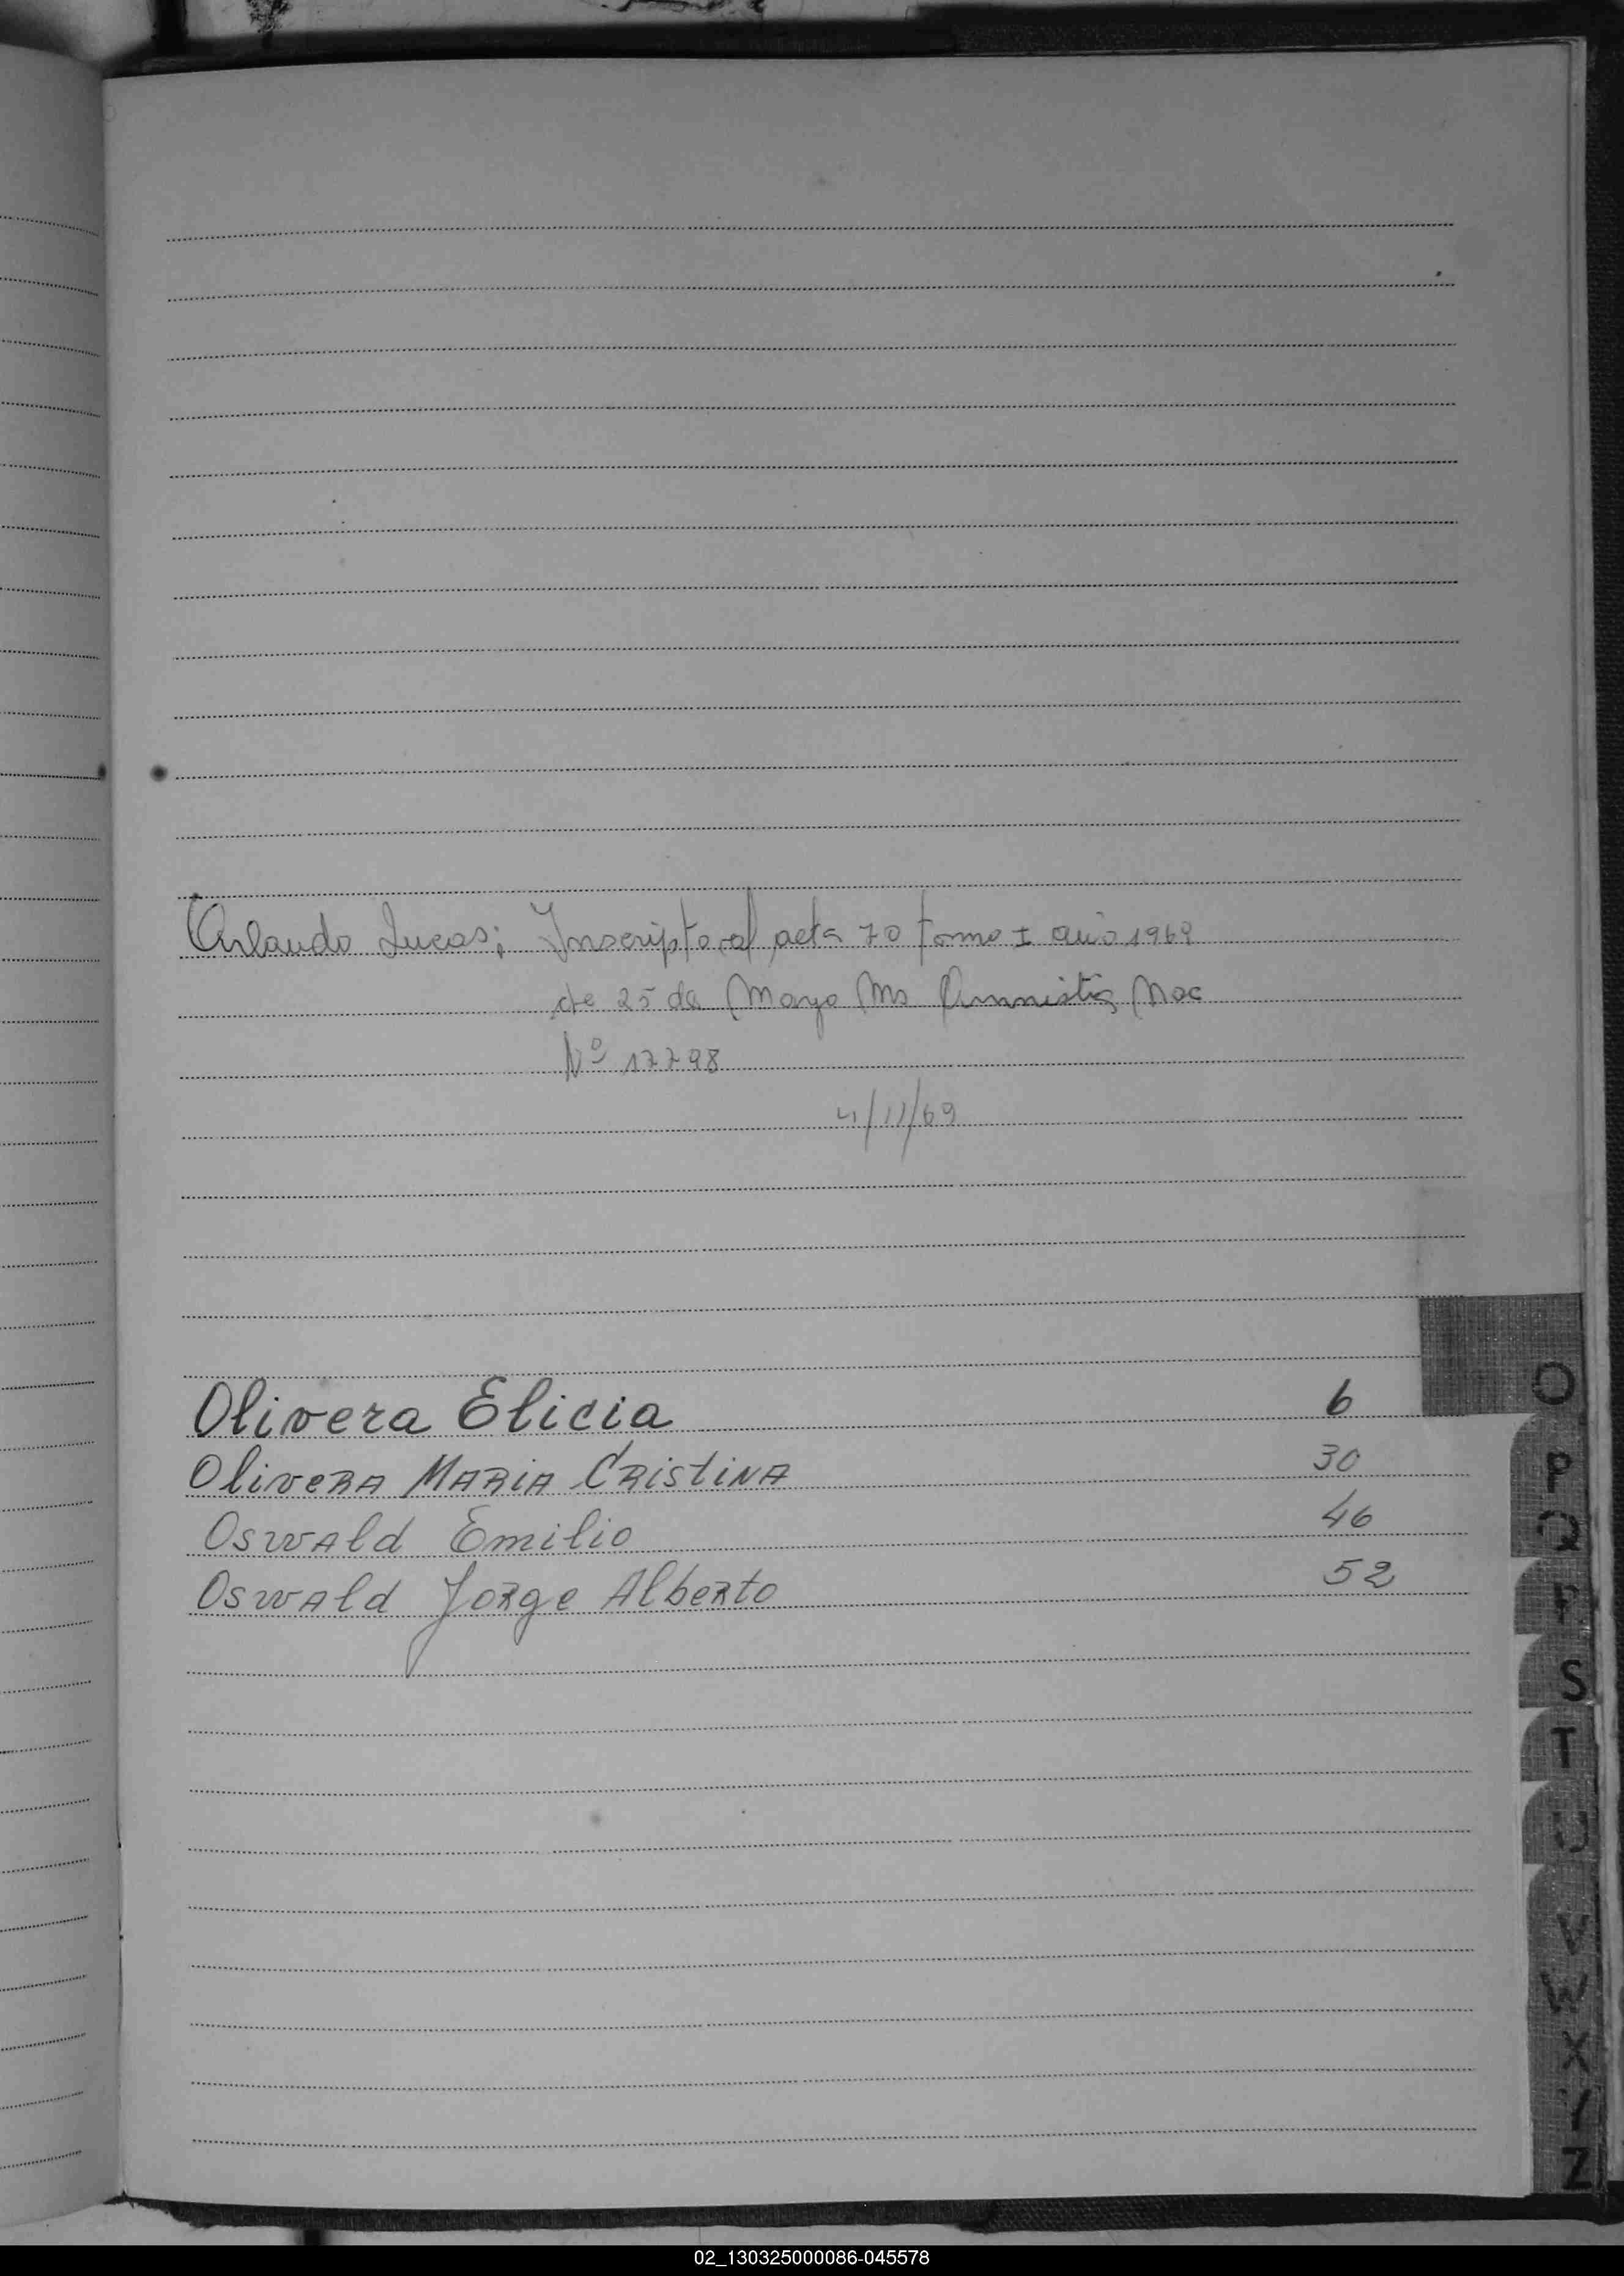 Orlando Lucas; Inscripto al acta 70 tomo I año 1969
de 25 de Mayo Ms Amnistia Nac
Nº 17798
4/11/69
Olivera Elicia 6
OliveRA MARiA CRistiNA 30
OswAld Emilio 46
OswAld JoRge AlbeRto 52
O
P
Q
R
S
T
U
V
W
X
Y
Z
02_130325000086-045578